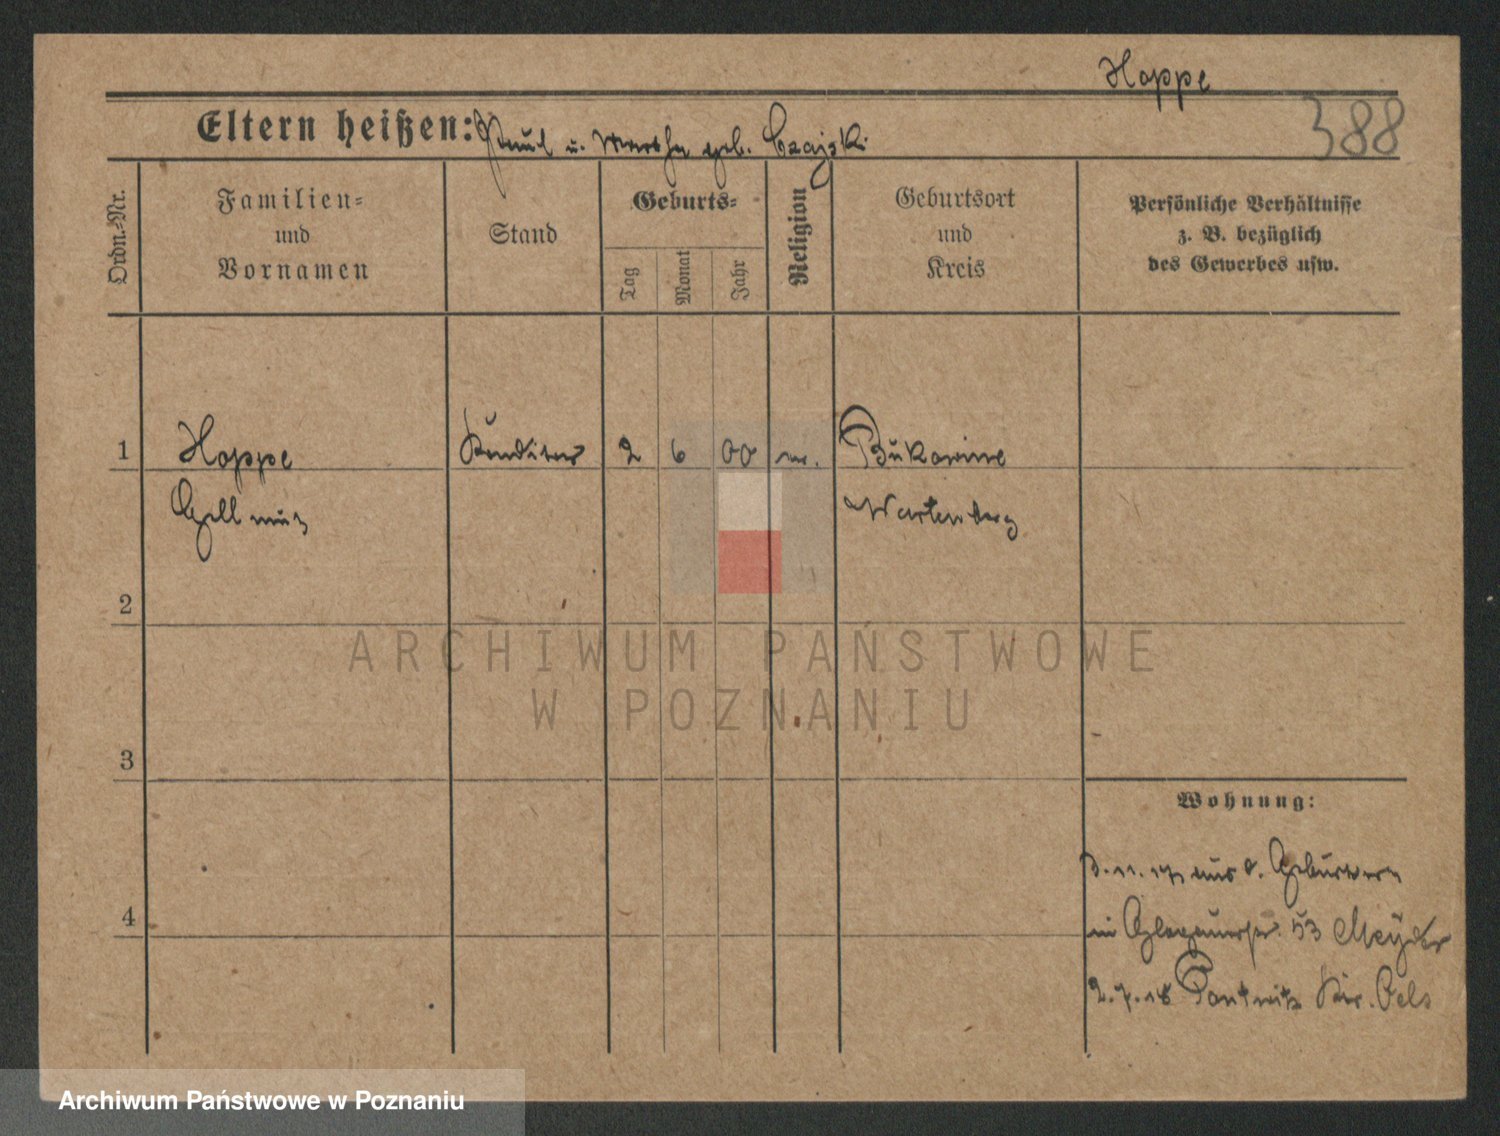 Hoppe
388
Eltern heißen: Paul u. Martha geb. Czajski
Ordn.=Nr.
Familien=
und
Vornamen
Stand
Geburts=
Tag
Monat
Jahr
Religion
Geburtsort
und
Kreis
Persönliche Verhältnisse
z. B. bezüglich
des Gewerbes usw.
1
Hoppe
Hellmut
Konditor
2
6
00
ev.
Bukowine
Wartenberg
2
3
4
Wohnung:
3. 11. 17
in Glogauerstr. 53 Meyer
2. 7. 18 Pontwitz Kr. Oels
ARCHIWUM PAŃSTWOWE
W POZNANIU
Archiwum Państwowe w Poznaniu